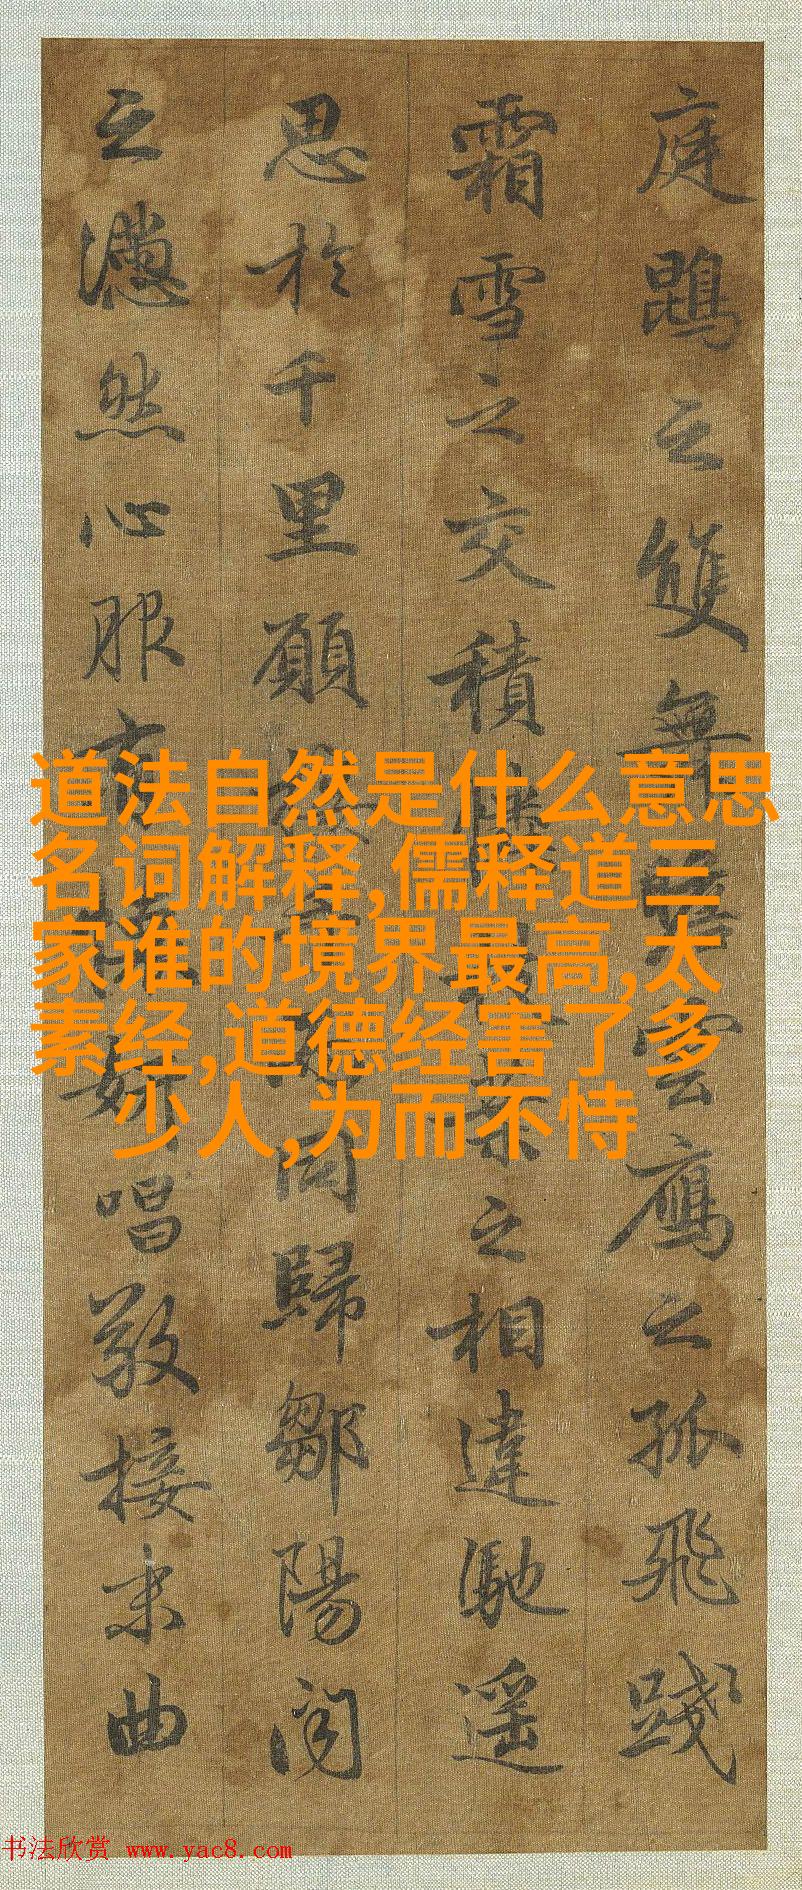 庭鵾之雙舞瞻雲鴈之孤飛踐
霜雪之交積憐葉之相違馳遥
思於千里願同歸鄒陽聞
之懣然心服有妍唱敬接末曲
道法自然是什么意思
名词解释,儒释道三
家谁的境界最高,太
素经,道德经害了多
少人,为而不恃
书法欣赏 www.yac8.com